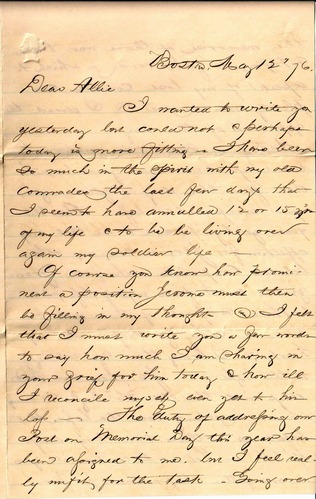 Boston, May 12" 76.
Dear Allie
I wanted to write you
yesterday but could not - perhaps
today is more fitting - I have been
so much in the spirit with my old
Comrades the last few days that
I seem to have annulled 12 or 15 yrs
of my life & to be living over
again my soldier life -
Of course you know how promi-
nent a position Jerome must then
be filling in my thoughts & I felt
that I must write you a few words
to say how much I am sharing in
your grief for him today & how ill
I reconcile myself even yet to his
loss. - The duty of addressing our
Post on Memorial Day this year has
been assigned to me. but I feel real-
ly unfit for the task - Going over